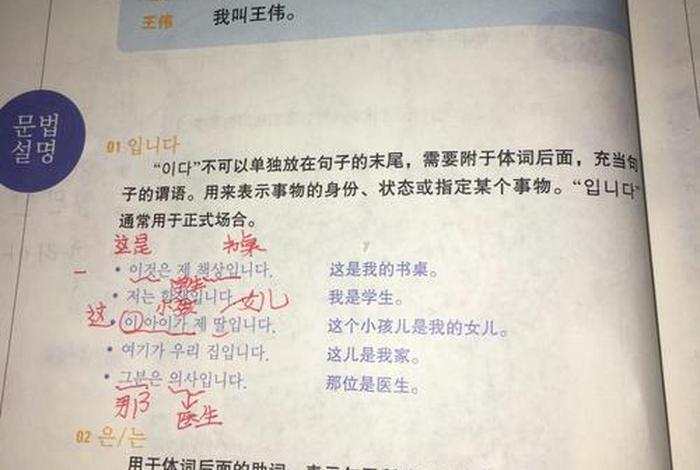 王伟 我叫王伟。
문법
설명
01 입니다
“이다”不可以单独放在句子的末尾，需要附于体词后面，充当句
子的谓语。用来表示事物的身份、状态或指定某个事物。“입니다”
通常用于正式场合。
这是 书桌
• 이것은 제 책상입니다. 这是我的书桌。
学生
• 저는 학생입니다. 我是学生。
小孩 女儿
这
• 이 아이가 제 딸입니다. 这个小孩儿是我的女儿。
• 여기가 우리 집입니다. 这儿是我家。
• 그분은 의사입니다. 那位是医生。
那 医生
02 은/는
用于体词后面的助词